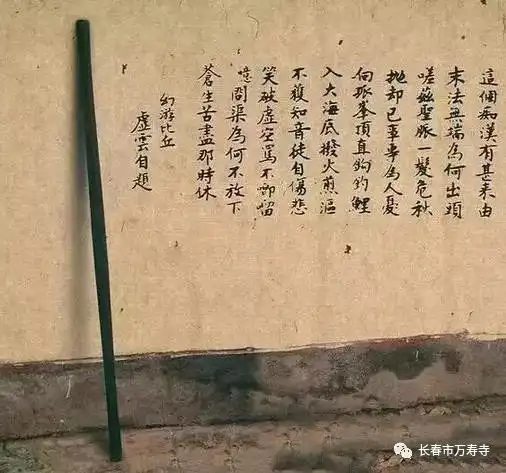 這個痴漢有甚来由
末法無端為何出頭
嗟茲聖脈一髮危秋
拋却已事為人憂
向孤峯頂直鈎釣鯉
入大海底撥火煎漚
不獲知音徒自傷悲
笑破虛空罵不唧留
噫問渠為何不放下
蒼生苦盡那時休
幻游比丘
虛雲自題
长春市万寿寺